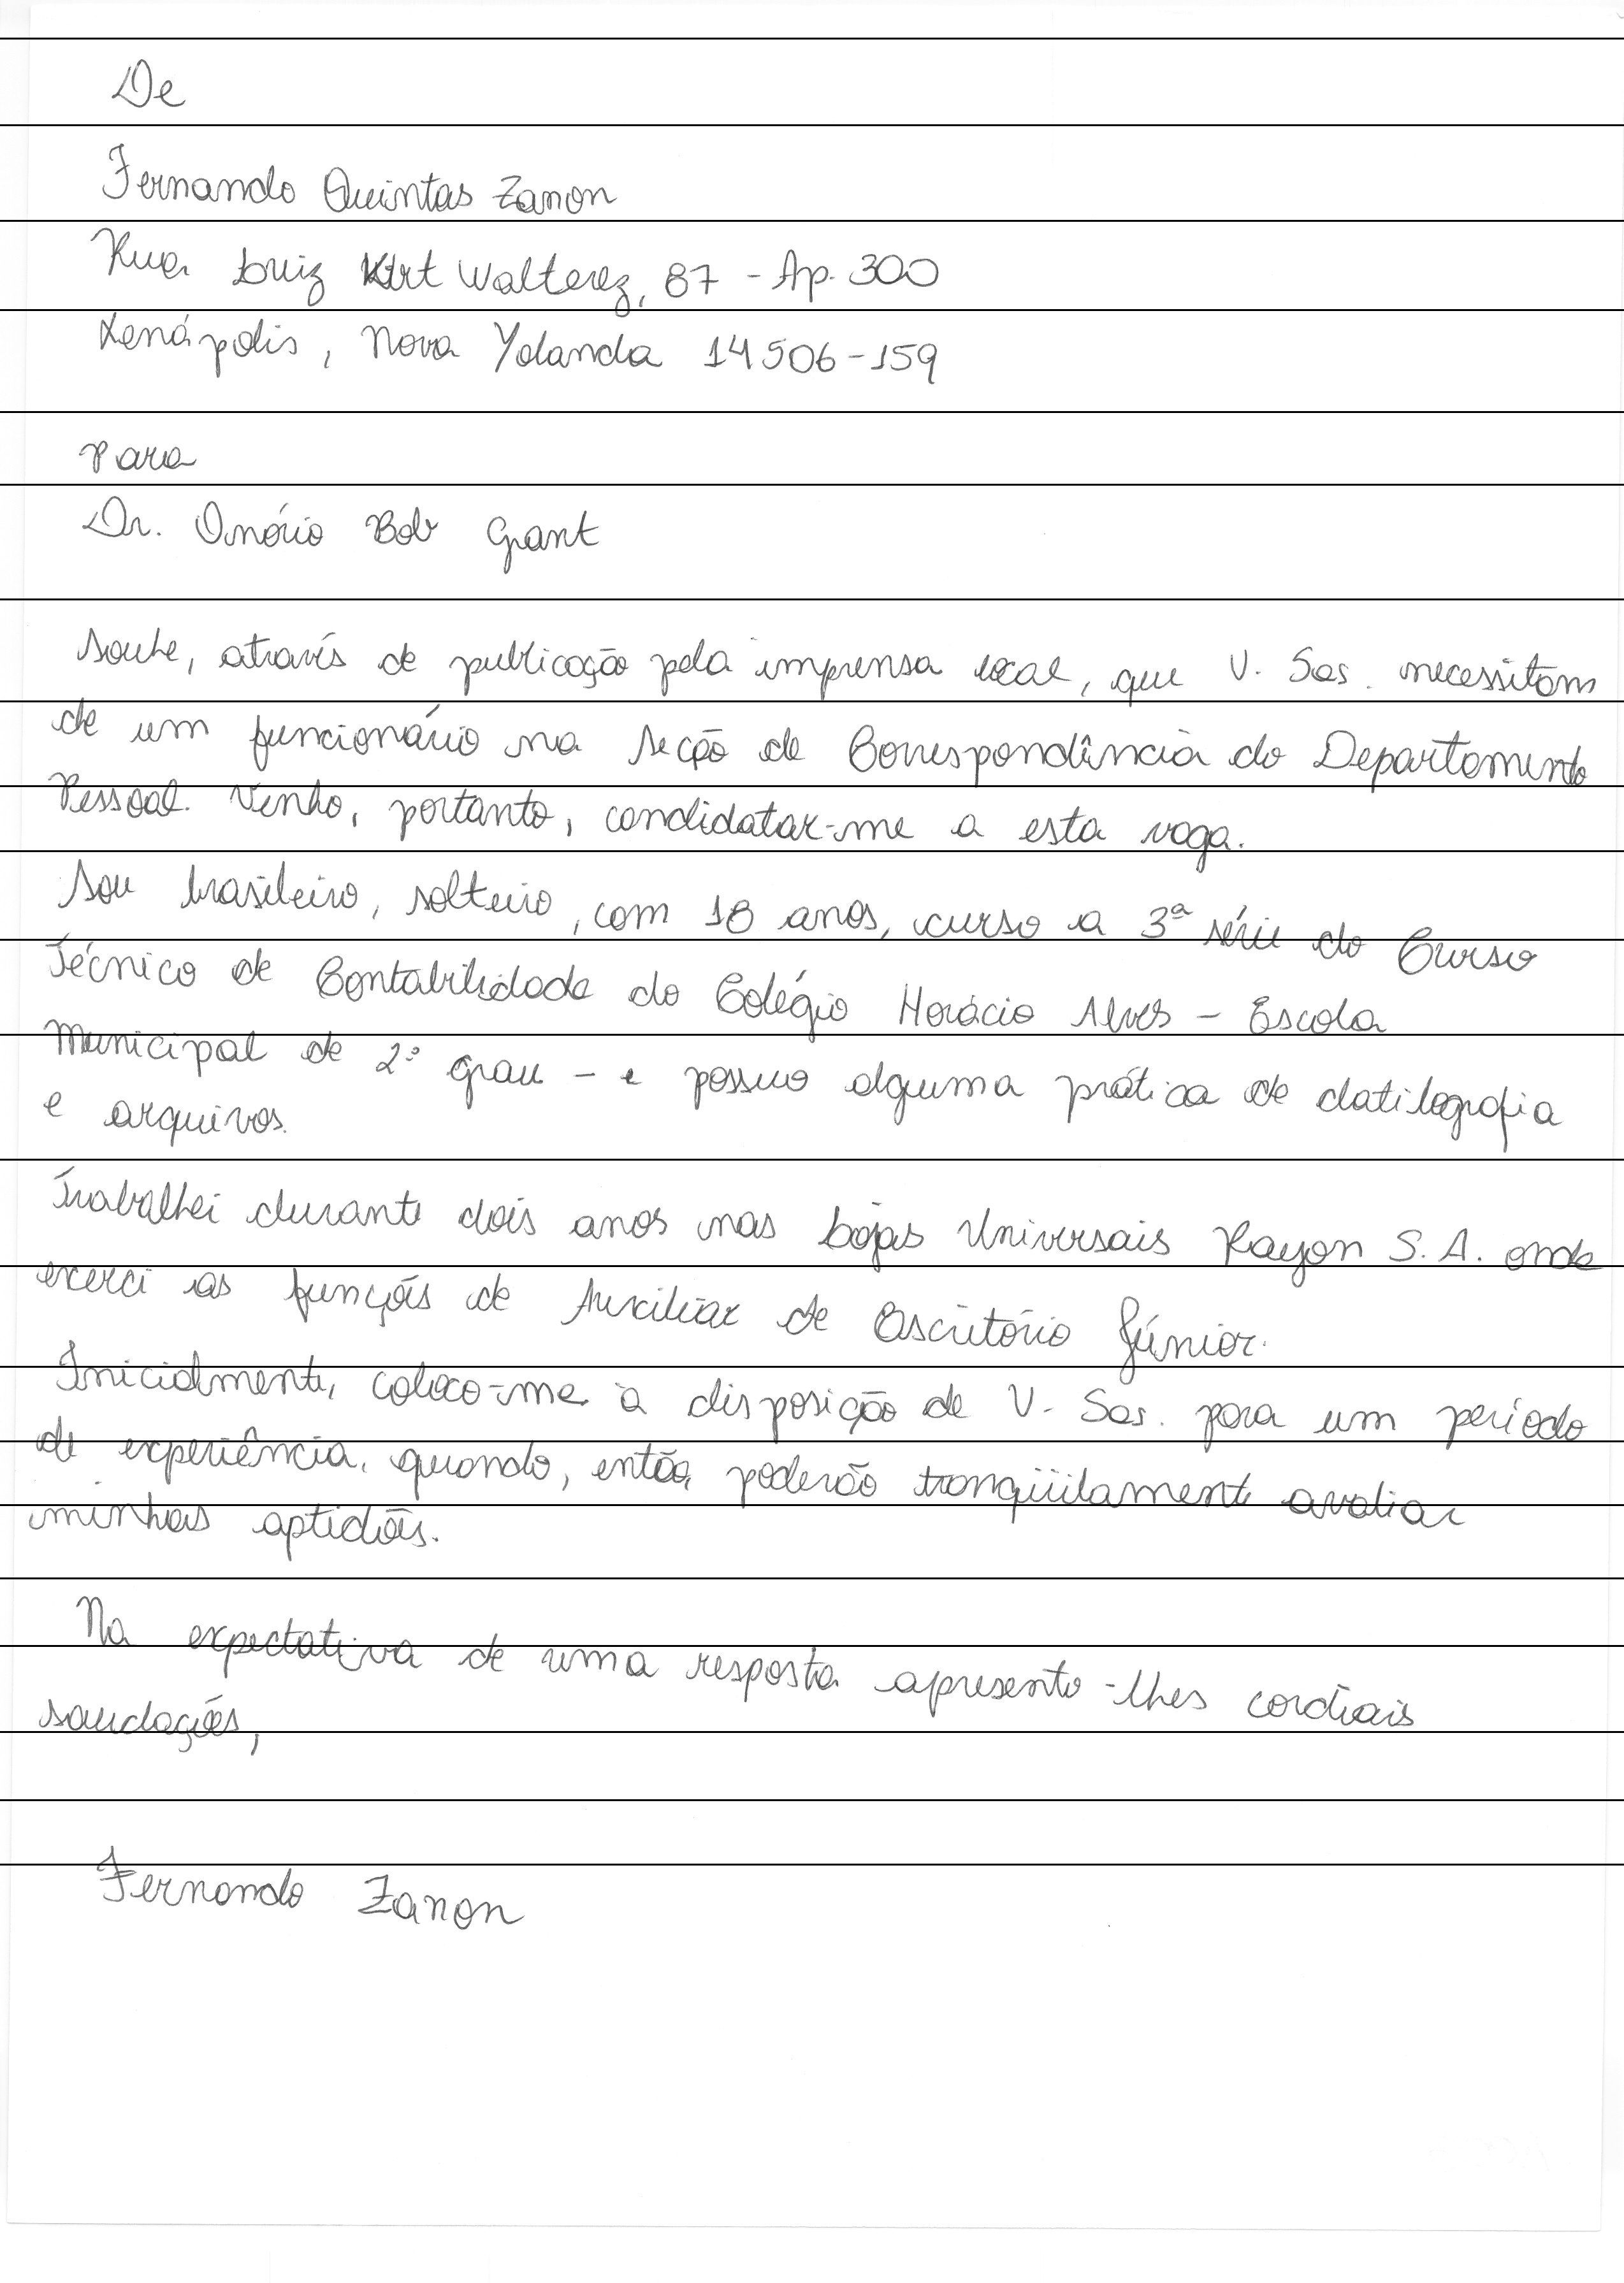 De
Fernando Quintas Zanon
Rua Luiz Kurt Walterez, 87 - Ap. 300
Xenápolis, Nova Yolanda 14506-159
Para
Dr. Onório Bob Grant
Soube, através de publicação pela imprensa local, que V. Sas. necessitam
de um funcionário na Seção de Correspondência do Departamento
Pessoal. Venho, portanto, candidatar-me a esta vaga.
Sou brasileiro, solteiro, com 18 anos, curso a 3ª série do Curso
Técnico de Contabilidade do Colégio Horácio Alves - Escola
Municipal de 2º grau - e possuo alguma prática de datilografia
e arquivos.
Trabalhei durante dois anos nas Lojas Universais Rayon S. A. onde
exerci as funções de Auxiliar de Escritório Júnior.
Inicialmente, coloco-me à disposição de V. Sas. para um período
de experiência, quando, então, poderão tranqüilamente avaliar
minhas aptidões.
Na expectativa de uma resposta apresento-lhes cordiais
saudações,
Fernando Zanon